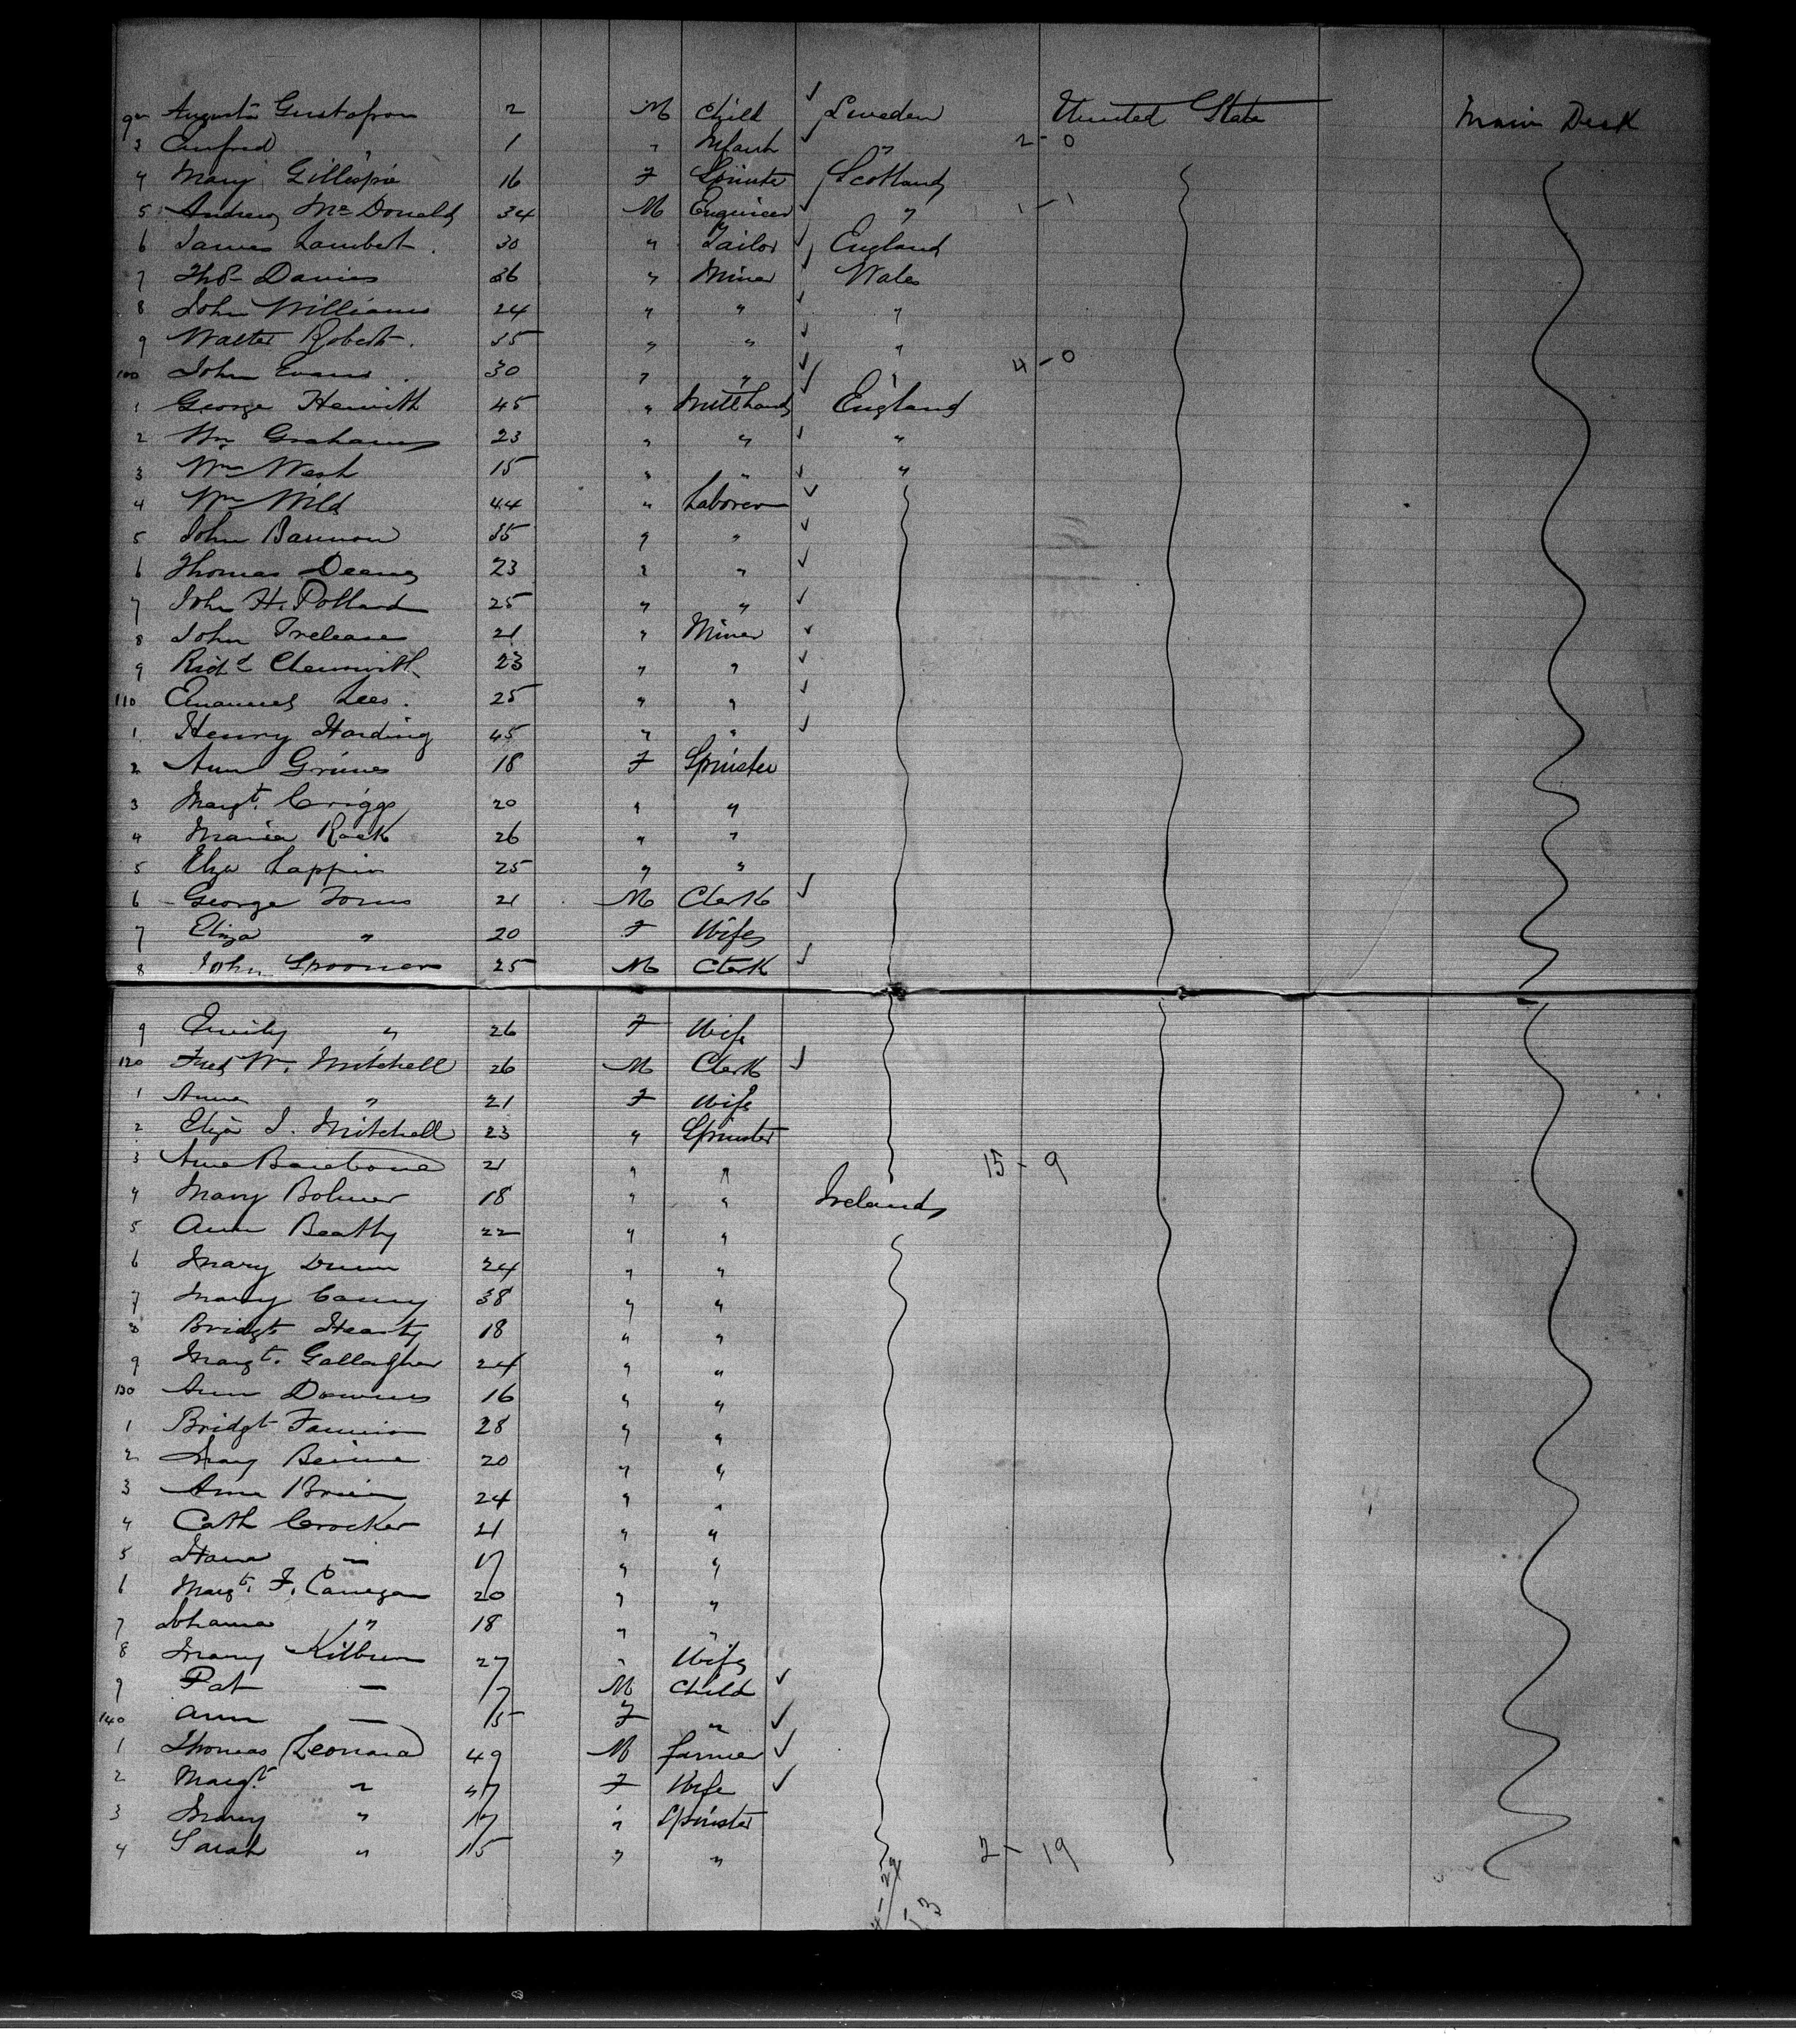 92 August Gustafson 2 M Child ✓ Sweden United State Main Deck
3 " 1 " Infant ✓ " 2-0
4 Mary Gillespie 16 F Spinster Scotland
5 Andrew McDonald 34 M Engineer ✓ " 1-1
6 James Lambert 30 " Tailor ✓ England
7 Thos Davies 36 " Miner ✓ Wales
8 John Williams 24 " " ✓ "
9 Walter Robert 35 " " ✓ "
100 John Evans 30 " " ✓ " 4-0
1 George 45 " Mill hand ✓ England
2 Wm Graham 23 " " ✓ "
3 Wm Wash 15 " " ✓ "
4 Wm Wild 44 " Laborer ✓
5 John Bannon 35 " " ✓
6 Thomas Deans 23 " " ✓
7 John H. Pollard 25 " " ✓
8 John Trelease 21 " Miner ✓
9 Richd 23 " " ✓
110 Emanuel Lees 25 " " ✓
1 Henry Harding 45 " " ✓
2 Ann Grimes 18 F Spinster
3 Margt. Griggs 20 " "
4 Maria Rock 26 " "
5 Eliza Lappin 25 " "
6 George 21 M Clerk ✓
7 Eliza " 20 F Wife
8 John Spooner 25 M Clerk ✓
9 Emily " 26 F Wife
120 Fred W. Mitchell 26 M Clerk ✓
1 Anne " 21 F Wife
2 Eliza J. Mitchell 23 " Spinster
3 Ann Barebone 21 " " 15-9
4 Mary Bolmer 18 " " Ireland
5 Ann Beatty 22 " "
6 Mary Dunn 24 " "
7 Mary Canny 38 " "
8 Bridgt Hearty 18 " "
9 Margt. Gallagher 24 " "
130 Ann Downes 16 " "
1 Bridgt Fannion 28 " "
2 Mary Beirne 20 " "
3 Ann Brien 24 " "
4 Cath Crocker 21 " "
5 Hana — 17 " "
6 Margt. F. Carrigan 20 " "
7 Johanna " 18 " "
8 Mary Kilburn 27 " Wife
9 Pat — 7 M Child ✓
140 Ann — 5 F " ✓
1 Thomas Leonard 49 M farmer ✓
2 Margt " 47 F Wife ✓
3 Mary " 17 " Spinster
4 Sarah " 15 " " 2-19